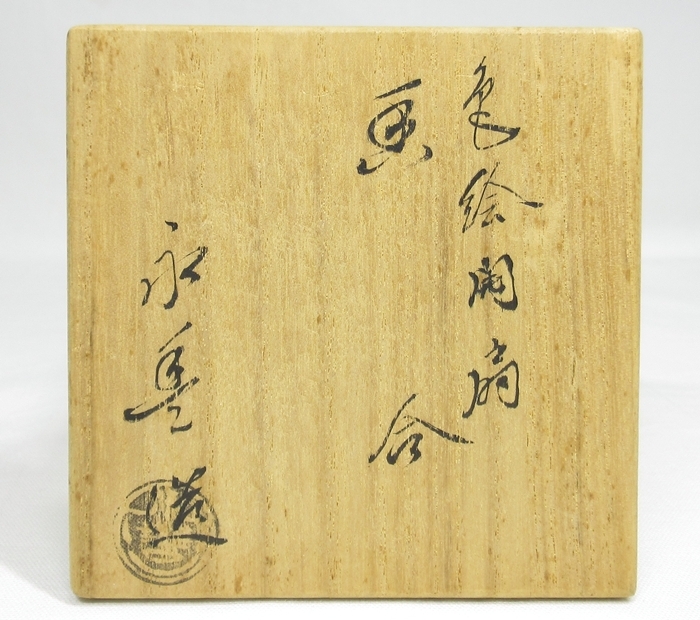 色絵開扇
香合
永豊造